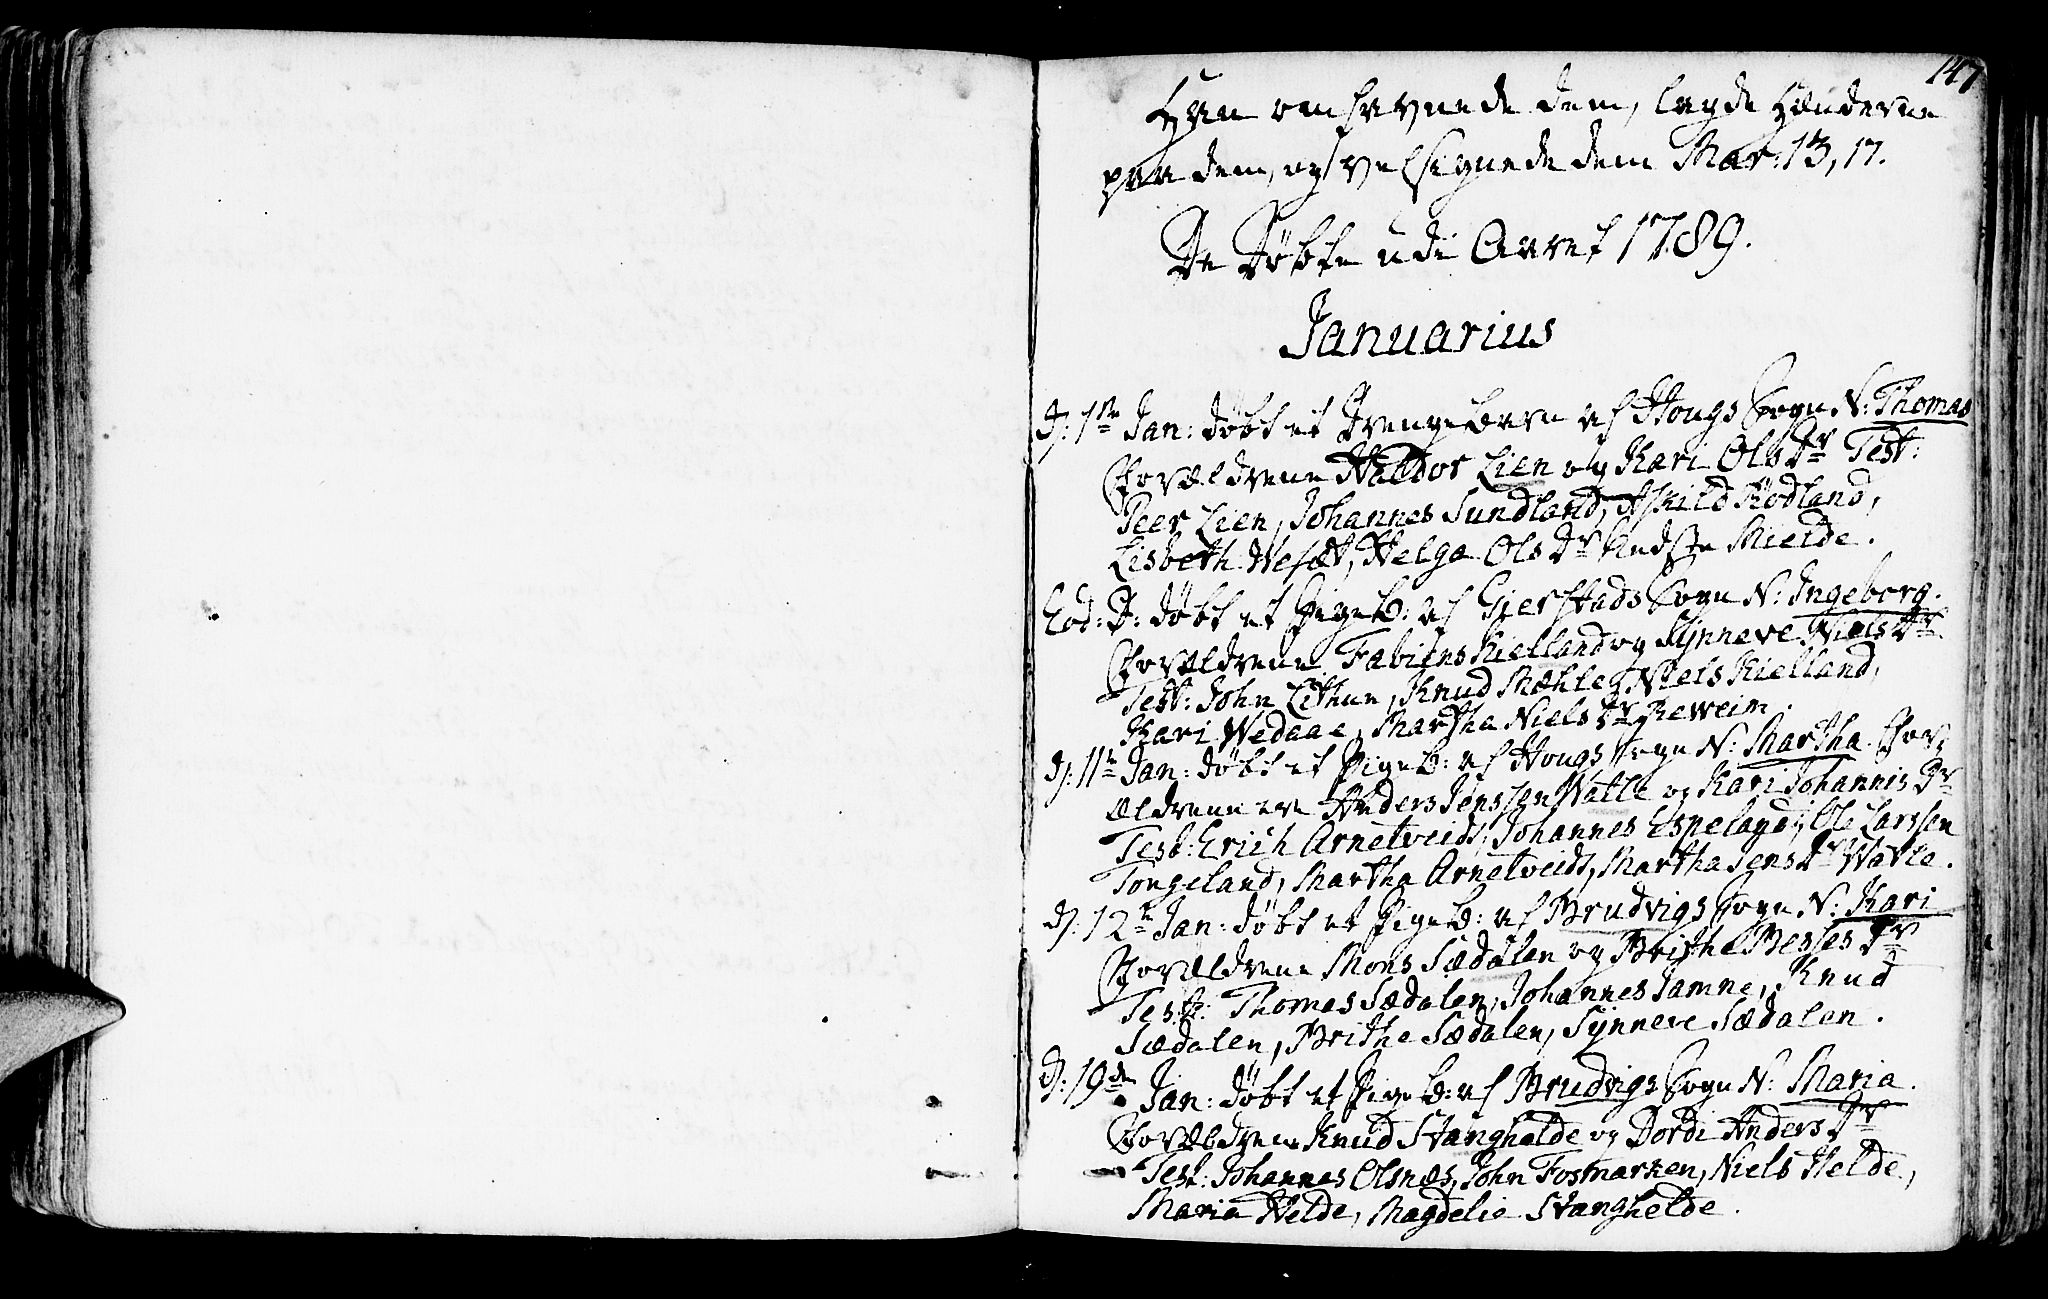 147
Han omfavnede dem, lagde Hænderne
paa dem, og velsignede dem Mar: 13, 17.
De Døbte udi Aaret 1789.
Januarius
d: 1ste Jan: døbt et Drengebarn af Hougs Sogn N: Thomas
Forældrene Haldor Lien og Kari Ols Dr Test:
Peer Lien, Johannes Sundland, Askild Rødland,
Lisbeth Wesæt, Helga Ols Dr Mielde.
Eod: D: døbt et Pigeb: af Gierstads Sogn N: Ingeborg.
Forældrene Fabiens Kielland og Synneve Niels Dr
Test: John Lithun, Knud Mæhle, Niels Kielland,
Kari Wedaae, Martha Niels Dr Reweim.
d: 11te Jan: døbt et Pigeb: af Hougs Sogn N: Martha. For
ældrene ere Anders Jenssen Watle og Kari Johannis Dr
Test: Erich Arnetveidt, Johannes Espeland, Ole Larssen
Tongeland, Martha Arnetveidt, Martha Jens Dr Watle.
d: 12te Jan: døbt et Pigeb: af Brudvigs Sogn N: Kari
Forældrene Mons Sædalen og Brithe Besses Dr
Test: Thomas Sædalen, Johannes Jamne, Knud
Sædalen, Brithe Sædalen, Synneve Sædalen.
d: 19de Jan: døbt et Pigeb: af Brudvigs Sogn N: Maria.
Forældrene Knud Stanghelde og Dordi Anders Dr
Test: Johannes Olsnæs, John Fosmarken, Niels Helde,
Maria Helde, Magdelie Stanghelde.